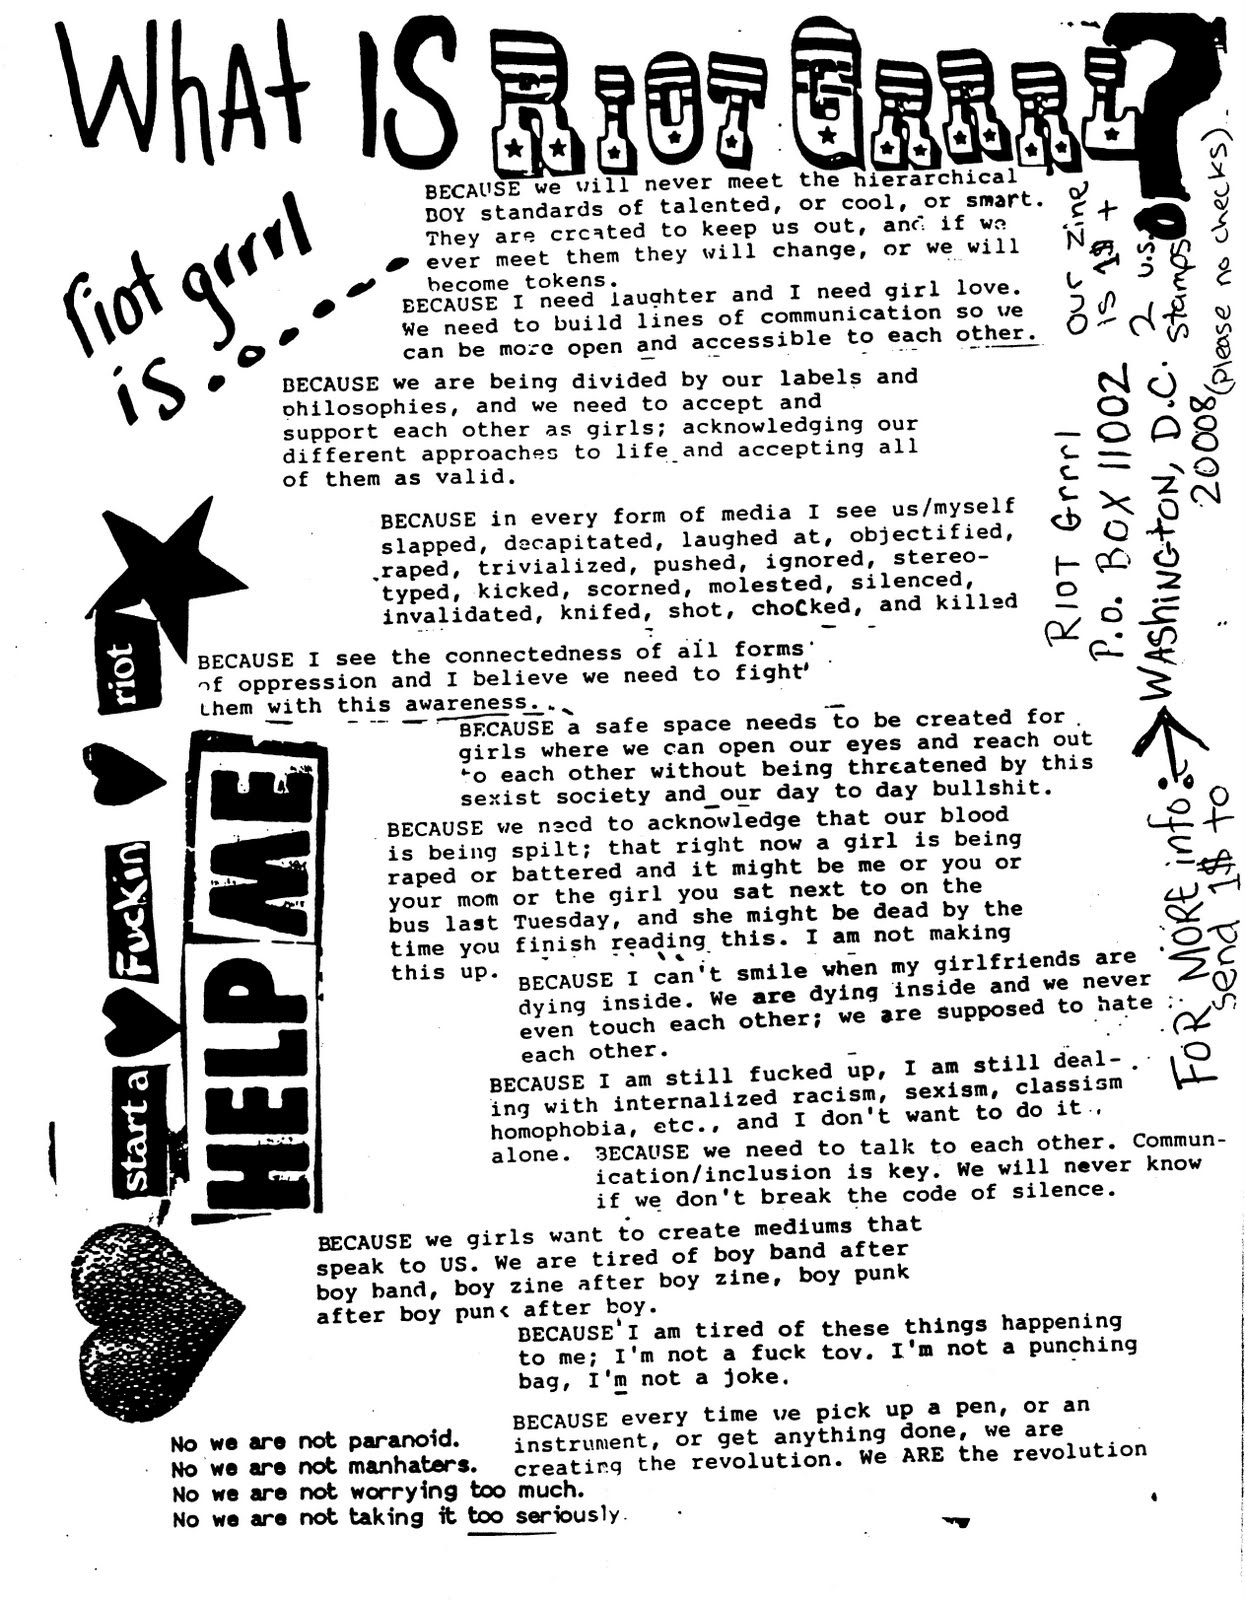 WhAt IS RIOT GRRRL?
riot grrrl
is.....
BECAUSE we will never meet the hierarchical
BOY standards of talented, or cool, or smart.
They are created to keep us out, and if we
ever meet them they will change, or we will
become tokens.
BECAUSE I need laughter and I need girl love.
We need to build lines of communication so we
can be more open and accessible to each other.
BECAUSE we are being divided by our labels and
philosophies, and we need to accept and
support each other as girls; acknowledging our
different approaches to life and accepting all
of them as valid.
BECAUSE in every form of media I see us/myself
slapped, decapitated, laughed at, objectified,
raped, trivialized, pushed, ignored, stereo-
typed, kicked, scorned, molested, silenced,
invalidated, knifed, shot, choCked, and killed
BECAUSE I see the connectedness of all forms
of oppression and I believe we need to fight
them with this awareness...
BECAUSE a safe space needs to be created for
girls where we can open our eyes and reach out
to each other without being threatened by this
sexist society and our day to day bullshit.
BECAUSE we need to acknowledge that our blood
is being spilt; that right now a girl is being
raped or battered and it might be me or you or
your mom or the girl you sat next to on the
bus last Tuesday, and she might be dead by the
time you finish reading this. I am not making
this up.
BECAUSE I can't smile when my girlfriends are
dying inside. We are dying inside and we never
even touch each other; we are supposed to hate
each other.
BECAUSE I am still fucked up, I am still deal-
ing with internalized racism, sexism, classism
homophobia, etc., and I don't want to do it
alone.
BECAUSE we need to talk to each other. Commun-
ication/inclusion is key. We will never know
if we don't break the code of silence.
BECAUSE we girls want to create mediums that
speak to US. We are tired of boy band after
boy band, boy zine after boy zine, boy punk
after boy punk after boy.
BECAUSE I am tired of these things happening
to me; I'm not a fuck toy. I'm not a punching
bag, I'm not a joke.
BECAUSE every time we pick up a pen, or an
instrument, or get anything done, we are
creating the revolution. We ARE the revolution
No we are not paranoid.
No we are not manhaters.
No we are not worrying too much.
No we are not taking it too seriously.
start a
Fuckin
riot
HELP ME
FOR MORE info:
send 1$ to
RIOT Grrrl
P.O. BOX 11002
WAShINGtON, D.C.
20008
our zine
is 1$ +
2 U.S.
stamps
(please no checks).